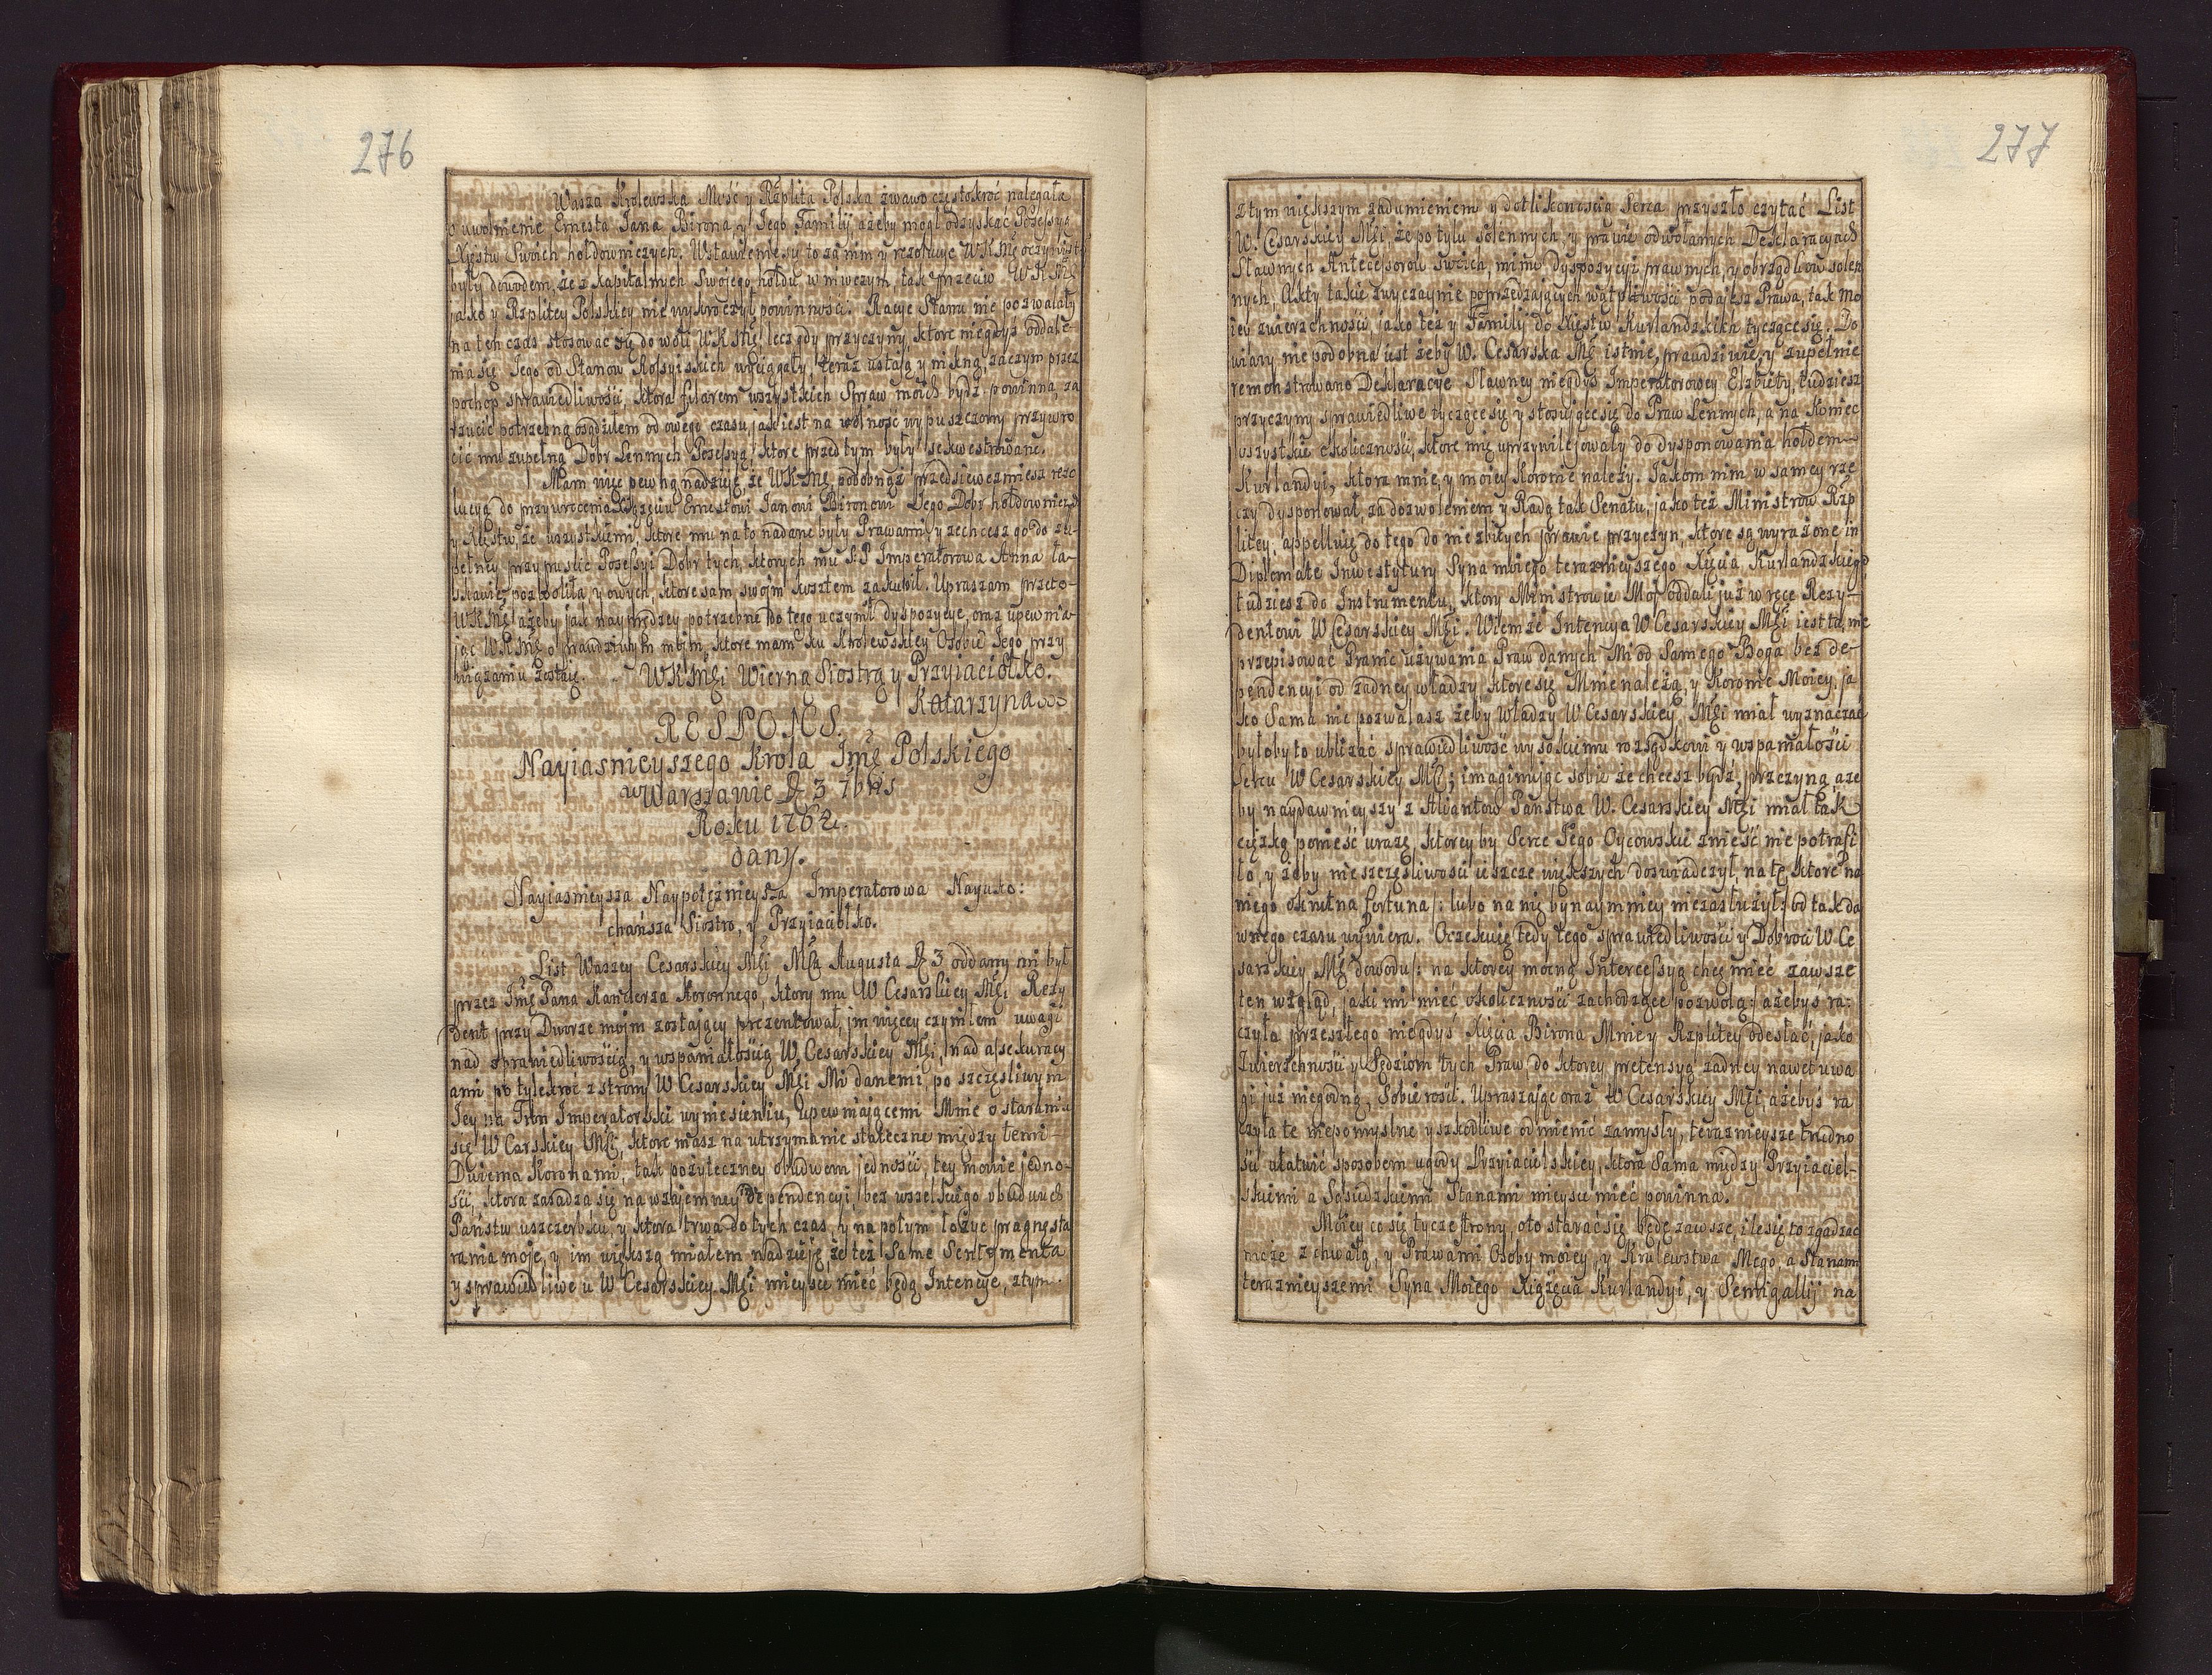 276
Wasza Krolewska Mość y Rzplita Polska żwawo częstokroć nalegała
o uwolnienie Ernesta Jana Birona y Jego Familij ażeby mogł odzyskać Possessyą
Xięstw Swoich hołdowniczych. Wstawienie się to za nim y rezolucye WKMę oczywist
były dowodem, że z kapitalnych Swoiego hołdu w niwczym, tak przeciw WKMę
jako y Rzplitey Polskiey nie wykroczył powinności. Racye Stanu nie pozwalały
na ten czas stosować się do woli WKMę, lecz gdy przyczyny, ktore niegdyś oddale-
nia się Jego od Stanow Rossyiskich wyciągały, teraz ustają y nikną, zaczym przez
pochop sprawiedliwości, ktora filarem wszystkich Spraw moich bydź powinna, za
rzecz potrzebną osądziłem od owego czasu, jak iest na wolność wypuszczony przywro
cić mu zupełną Dobr Lennych Possessyą, ktore przed tym były sekwestrowane.
Mam więc pewną nadzieję, że WKMę, podobnąż przedsięweźmiesz rezo
lucyą do przywrocenia Xiążęciu Ernestowi Janowi Bironowi Jego Dobr hołdowniczych
y Xięstw, ze wszystkiemi, ktore mu na to nadane były Prawami, y zechcesz go do zu-
pełney przypuscić Possessyi Dobr tych, ktorych mu S: P Imperatorowa Anna ła-
skawie pozwoliła, y owych, ktore sam swoim kosztem zakupił. Upraszam przeto-
WKMę ażeby jak nayprędzey potrzebne do tego uczynił dyspozycye, oraz upewnia-
jąc WKMę o prawdziwym moim, ktore mam ku Krolewskiey Osobie Jego przy
wiązaniu zostaię. WKMci Wierną Siostrą y Przyiaciołko.
Katarzyna
RESPONS.
Nayiasnieyszego Krola Jmę Polskiego
w Warszawie D. 3 7bris
Roku 1762.
dany.
Nayiasnieysza Naypotężnieysza Imperatorowa Nayuko:
chańsza Siostro, y Przyiaciołko.
List Waszey Cesarskiey Mci Msca Augusta D. 3 oddany mi był
przez Jmę Pana Kanclerza Koronnego, ktory mu W Cesarskiey Mci Rezy
dent przy Dworze moim zostający prezentował, im więcey czyniłem uwagi
nad sprawiedliwością, y wspaniałością W. Cesarskiey Mci, nad assekuracy
ami po tylekroć z strony W Cesarskiey Mci Mi danemi, po szczęśliwym
Jey na Tron Imperatorski wyniesieniu, upewniającemi Mnie o staraniu
się W Carskiey Mci, ktore masz na utrzymanie stateczne między temi-
Dwiema Koronami, tak pożyteczney obudwom jedności, tey mowię jedno-
ści, ktora zasadza się na wzajemney dependencyi, bez wszelkiego obudwuch
Państw uszczerbku, y ktora trwa do tych czas, y na potym łożyć pragnę sta
rania moje, y im większą miałem nadzieję, że też same Sentymenta
y sprawiedliwe u W Cesarskiey Mci mieysce mieć będą Intencye, z tym.
277
z tym większym zadumieniem y dotkliwością Serca przyszło czytać List
W. Cesarskiey Mci, że po tylu solennych, y prawie odwołanych Deklaracyach
Sławnych Antecessorow swoich, mimo dyspozycyi prawnych, y obrządkow solen
nych, Akty takie zwyczaynie poprzedzających wątpliwości podajesz Prawa, tak mo
iey zwierzchności, jako też y Familij do Xięstw Kurlandzkich tyczące się. Do
wiary nie podobna iest żeby W. Cesarska Mę istnie, prawdziwie, y zupełnie
remonstrowano Deklaracye Sławney niegdyś Imperatorowey Elzbiety, tudziesz
przyczyny sprawiedliwe tyczące się y stosujące się do Praw Lennych, a na koniec
wszystkie okoliczności, ktore mię uprzywilejowały do dysponowania hołdem
Kurlandyi, ktora mnie, y moiey Koronie należy. Jakom nim w samey rze
czy dysponował, za dozwoleniem y Radą tak Senatu, jako też Ministrow Rzp
litey, appelluię do tego do niezbitych prawie przyczyn, ktore są wyrażone in
Diplomate Inwestytury Syna moiego teraznieyszego Xięcia Kurlandzkiego,
tudziesz do Instrumentu, ktory Ministrowie Moi oddali już w ręce Rezy-
dentowi W Cesarskiey Mci. Wiem że Intencya W Cesarskiey Mci iest ta, nie
przepisować Granic używania Praw danych Mi od Samego Boga bez de-
pendencyi od żadney władzy, ktore się Mnie należą, y Koronie Moiey, ja
ko Sama nie pozwalasz żeby władzy W Cesarskiey Mci miał wyznaczać
byłoby to ubliżać sprawiedliwość wysokiemu rozsądkowi y wspaniałości
Sercu W Cesarskiey Mci; imaginując sobie że chcesz bydź, przyczyną, aże
by naydawnieyszy z Aliantow Państwa W. Cesarskiey Mci miał tak
ciężką ponieść urazę, ktorey by Serce Jego Oycowskie znieść nie potrafi
ło, y żeby nieszczęśliwości ieszcze większych doświadczył, na te, ktore na
niego okrutna fortuna /: lubo na nię bynaymniey niezasłużył :/ od tak da
wnego czasu wywiera. Oczekuię tedy tego sprawiedliwości y Dobroci W Ce
sarskiey Mci dowodu /: na ktorey mocną Intercessyą chcę mieć zawsze
ten wzgląd, jaki mi mieć okoliczności zachodzące pozwolą :/ ażebyś ra:
czyła przeszłego niegdyś Xięcia Birona Mnie y Rzplitey odesłać, jako
Zwierzchności y Sędziom tych Praw do ktorey pretensyą żadney nawet uwa
gi już niegodną, Sobie rości. Upraszając oraz W Cesarskiey Mci, ażebyś ra
czyła te niepomyslne y szkodliwe odmienić zamysły, teraznieysze trudno
ści ułatwić sposobem ugody Przyiacielskiey, ktora Sama między Przyiaciel-
skiemi a Sąsiedzkiemi Stanami mieysce mieć powinna.
Moiey co się tycze strony, oto starać się będę zawsze, ile się to zgadzać
może z chwałą, y Prawami Osoby moiey, y Krulewstwa Mego, a Stanam
teraznieyszemi Syna Moiego Xiążęcia Kurlandyi, y Semigallij na